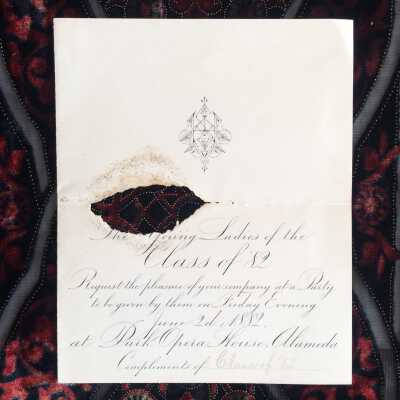 The Young Ladies of the
Class of '82
Request the pleasure of your company at a Party
to be given by them on Friday Evening
June 2d, 1882.
at Park Opera House, Alameda
Compliments of Class of '82